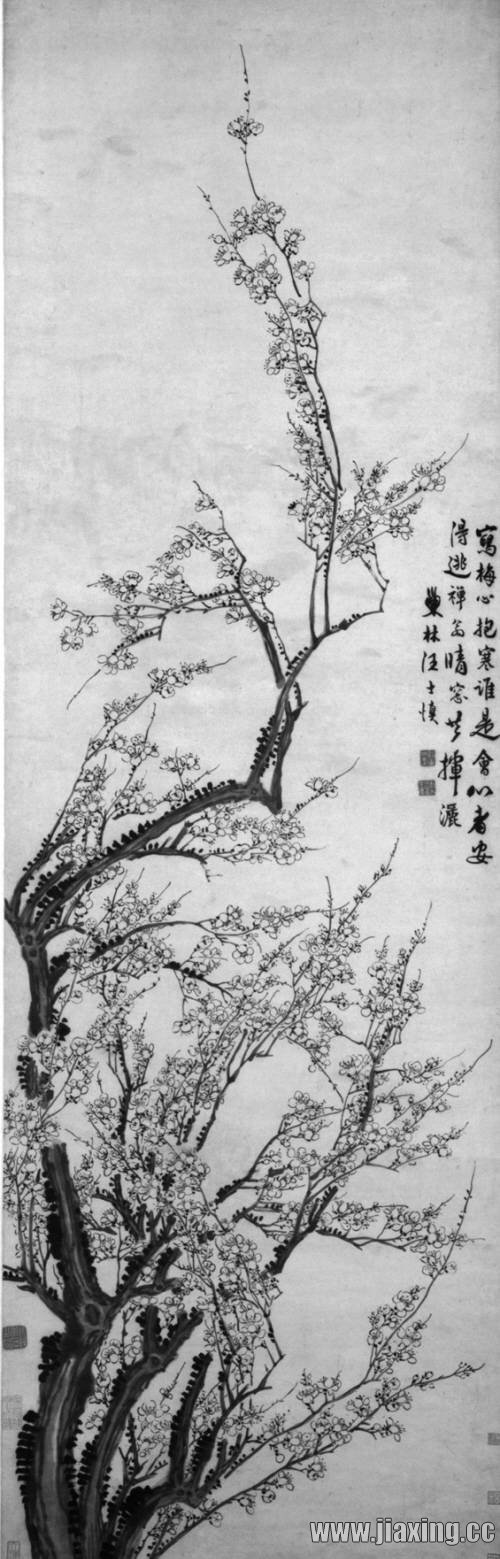 寫梅心抱寒誰是會心者安
得逃禪翁晴窓共揮灑
巢林汪士慎
www.jiaxing.cc